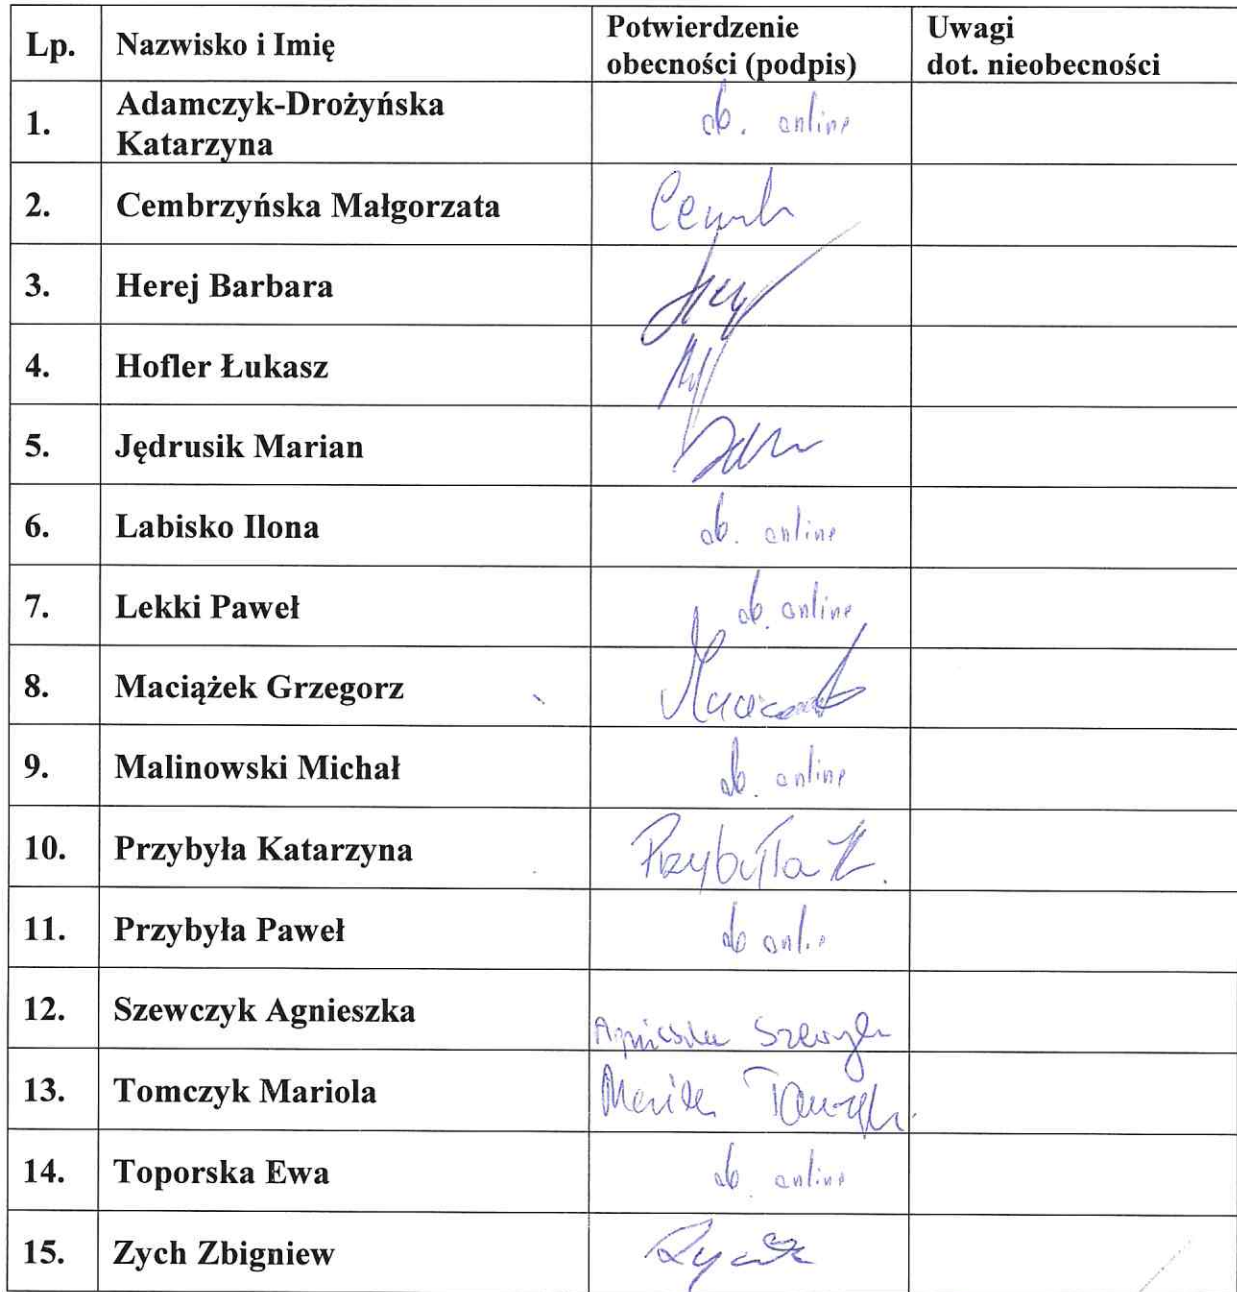 Lp. Nazwisko i Imię Potwierdzenie obecności (podpis) Uwagi dot. nieobecności
1. Adamczyk-Drożyńska Katarzyna ob. online
2. Cembrzyńska Małgorzata
3. Herej Barbara
4. Hofler Łukasz
5. Jędrusik Marian
6. Labisko Ilona ob. online
7. Lekki Paweł ob. online
8. Maciążek Grzegorz
9. Malinowski Michał ob. online
10. Przybyła Katarzyna Przybyła K.
11. Przybyła Paweł ob
12. Szewczyk Agnieszka Agnieszka Szewczyk
13. Tomczyk Mariola Mariola Tomczyk
14. Toporska Ewa ob. online
15. Zych Zbigniew